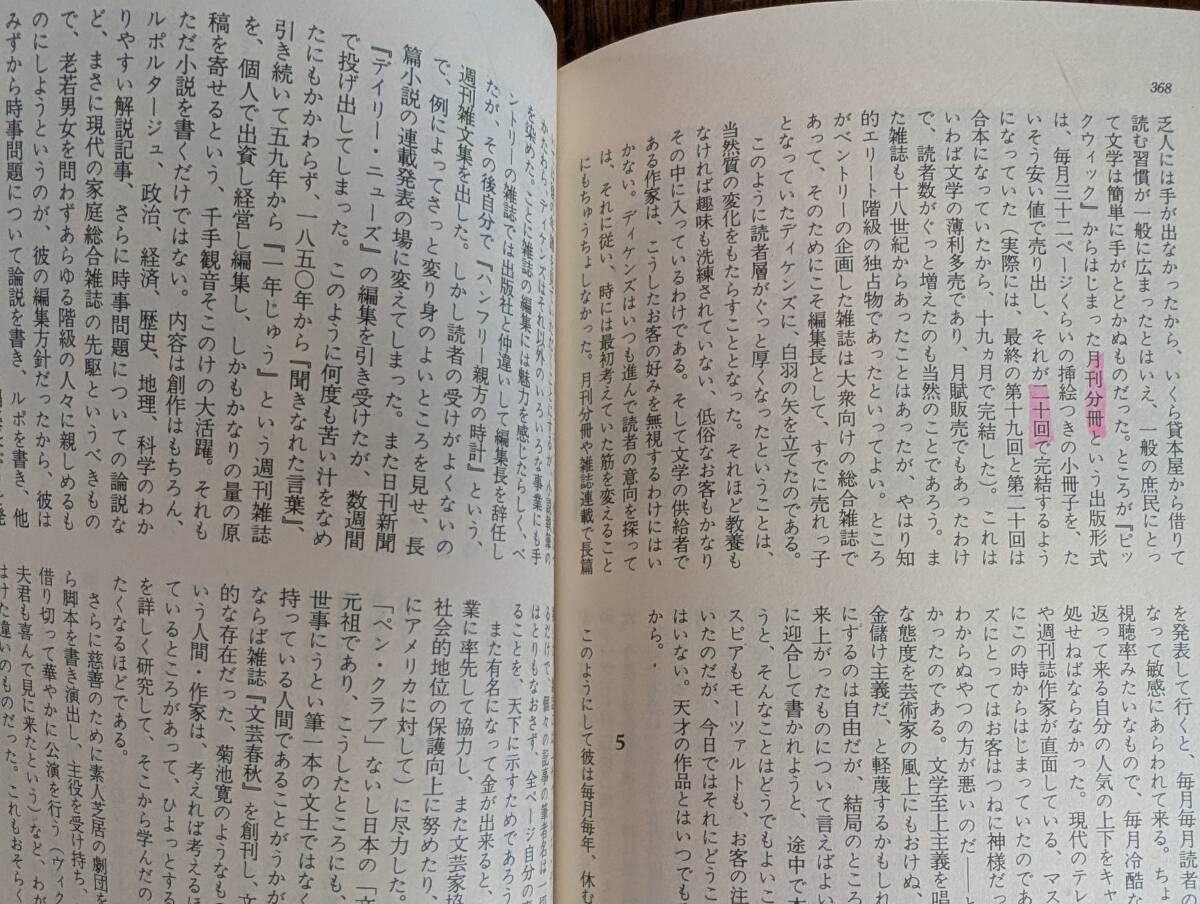 368
乏人には手が出なかったから、いくら貸本屋から借りて
読む習慣が一般に広まったとはいえ、一般の庶民にとっ
て文学は簡単に手がとどかぬものだった。ところが『ピッ
クウィック』からはじまった月刊分冊という出版形式
は、毎月三十二ページくらいの挿絵つきの小冊子を、た
いそう安い値で売り出し、それが二十回で完結するよう
になっていた(実際には、最終の第十九回と第二十回は
合本になっていたから、十九ヵ月で完結した)。これは
いわば文学の薄利多売であり、月賦販売でもあったわけ
で、読者数がぐっと増えたのも当然のことであろう。ま
た雑誌も十八世紀からあったことはあったが、やはり知
的エリート階級の独占物であったといってよい。ところ
がベントリーの企画した雑誌は大衆向けの総合雑誌で
あって、そのためにこそ編集長として、すでに売れっ子
となっていたディケンズに、白羽の矢を立てたのである。
このように読者層がぐっと厚くなったということは、
当然質の変化をもたらすこととなった。それほど教養も
なければ趣味も洗練されていない、低俗なお客もかなり
その中に入っているわけである。そして文学の供給者で
ある作家は、こうしたお客の好みを無視するわけにはい
かない。ディケンズはいつも進んで読者の意向を探って
は、それに従い、時には最初考えていた筋を変えること
にもちゅうちょしなかった。月刊分冊や雑誌連載で長篇
を発表して行くと、毎月毎月読者の
なって敏感にあらわれて来る。ちょ
視聴率みたいなもので、毎月冷酷な
返って来る自分の人気の上下をキャ
処せねばならなかった。現代のテレ
や週刊誌作家が直面している、マス
にこの時からはじまっていたのであ
ズにとってはお客はつねに神様だっ
わからぬやつの方が悪いのだ――と
かったのである。文学至上主義を唱
な態度を芸術家の風上にもおけぬ、
金儲け主義だ、と軽蔑するかもしれ
にするのは自由だが、結局のところ
来上がったものについて言えばよい
に迎合して書かれようと、途中で本
うと、そんなことはどうでもよいこ
スピアもモーツァルトも、お客の注
いたのだが、今日ではそれにどうこ
はいない。天才の作品とはいつでも
から。
5
このようにして彼は毎月毎年、休む
かたわら、ディケンズはそれ以外のいろいろな事業にも手
を染めた。ことに雑誌の編集には魅力を感じたらしく、ベ
ントリーの雑誌では出版社と仲違いして編集長を辞任し
たが、その後自分で『ハンフリー親方の時計』という
週刊雑文集を出した。しかし読者の受けがよくないの
で、例によってさっと変り身のよいところを見せ、長
篇小説の連載発表の場に変えてしまった。また日刊新聞
『デイリー・ニューズ』の編集を引き受けたが、数週間
で投げ出してしまった。このように何度も苦い汁をなめ
たにもかかわらず、一八五〇年から『聞きなれた言葉』、
引き続いて五九年から『一年じゅう』という週刊雑誌
を、個人で出資し経営し編集し、しかもかなりの量の原
稿を寄せるという、千手観音そこのけの大活躍。それも
ただ小説を書くだけではない。内容は創作はもちろん、
ルポルタージュ、政治、経済、歴史、地理、科学のわか
りやすい解説記事、さらに時事問題についての論説な
ど、まさに現代の家庭総合雑誌の先駆というべきもの
で、老若男女を問わずあらゆる階級の人々に親しめるも
のにしようというのが、彼の編集方針だったから、彼は
みずから時事問題について論説を書き、ルポを書き、他
るだけで、個々の記事の筆者名は一切
はとりもなおさず、全ページ自分の
ることを、天下に示すためであろう
また有名になって金が出来ると、
業に率先して協力し、また文芸家協
社会的地位の保護向上に努めたり、
にアメリカに対して)に尽力した。
「ペン・クラブ」ないし日本の「文
元祖であり、こうしたところにも、
世事にうとい筆一本の文士ではなく
持っている人間であることがうかが
ならば雑誌『文芸春秋』を創刊し、文
的な存在だった、菊池寛のようなも
いう人間・作家は、考えれば考えるほ
ているところがあって、ひょっとする
を詳しく研究して、そこから学んだの
たくなるほどである。
さらに慈善のために素人芝居の劇団を
ら脚本を書き演出し、主役を受け持ち、
借り切って華やかに公演を行う(ヴィク
夫君も喜んで見に来たという)など、わが
はけた違いのものだった。これもおそらく